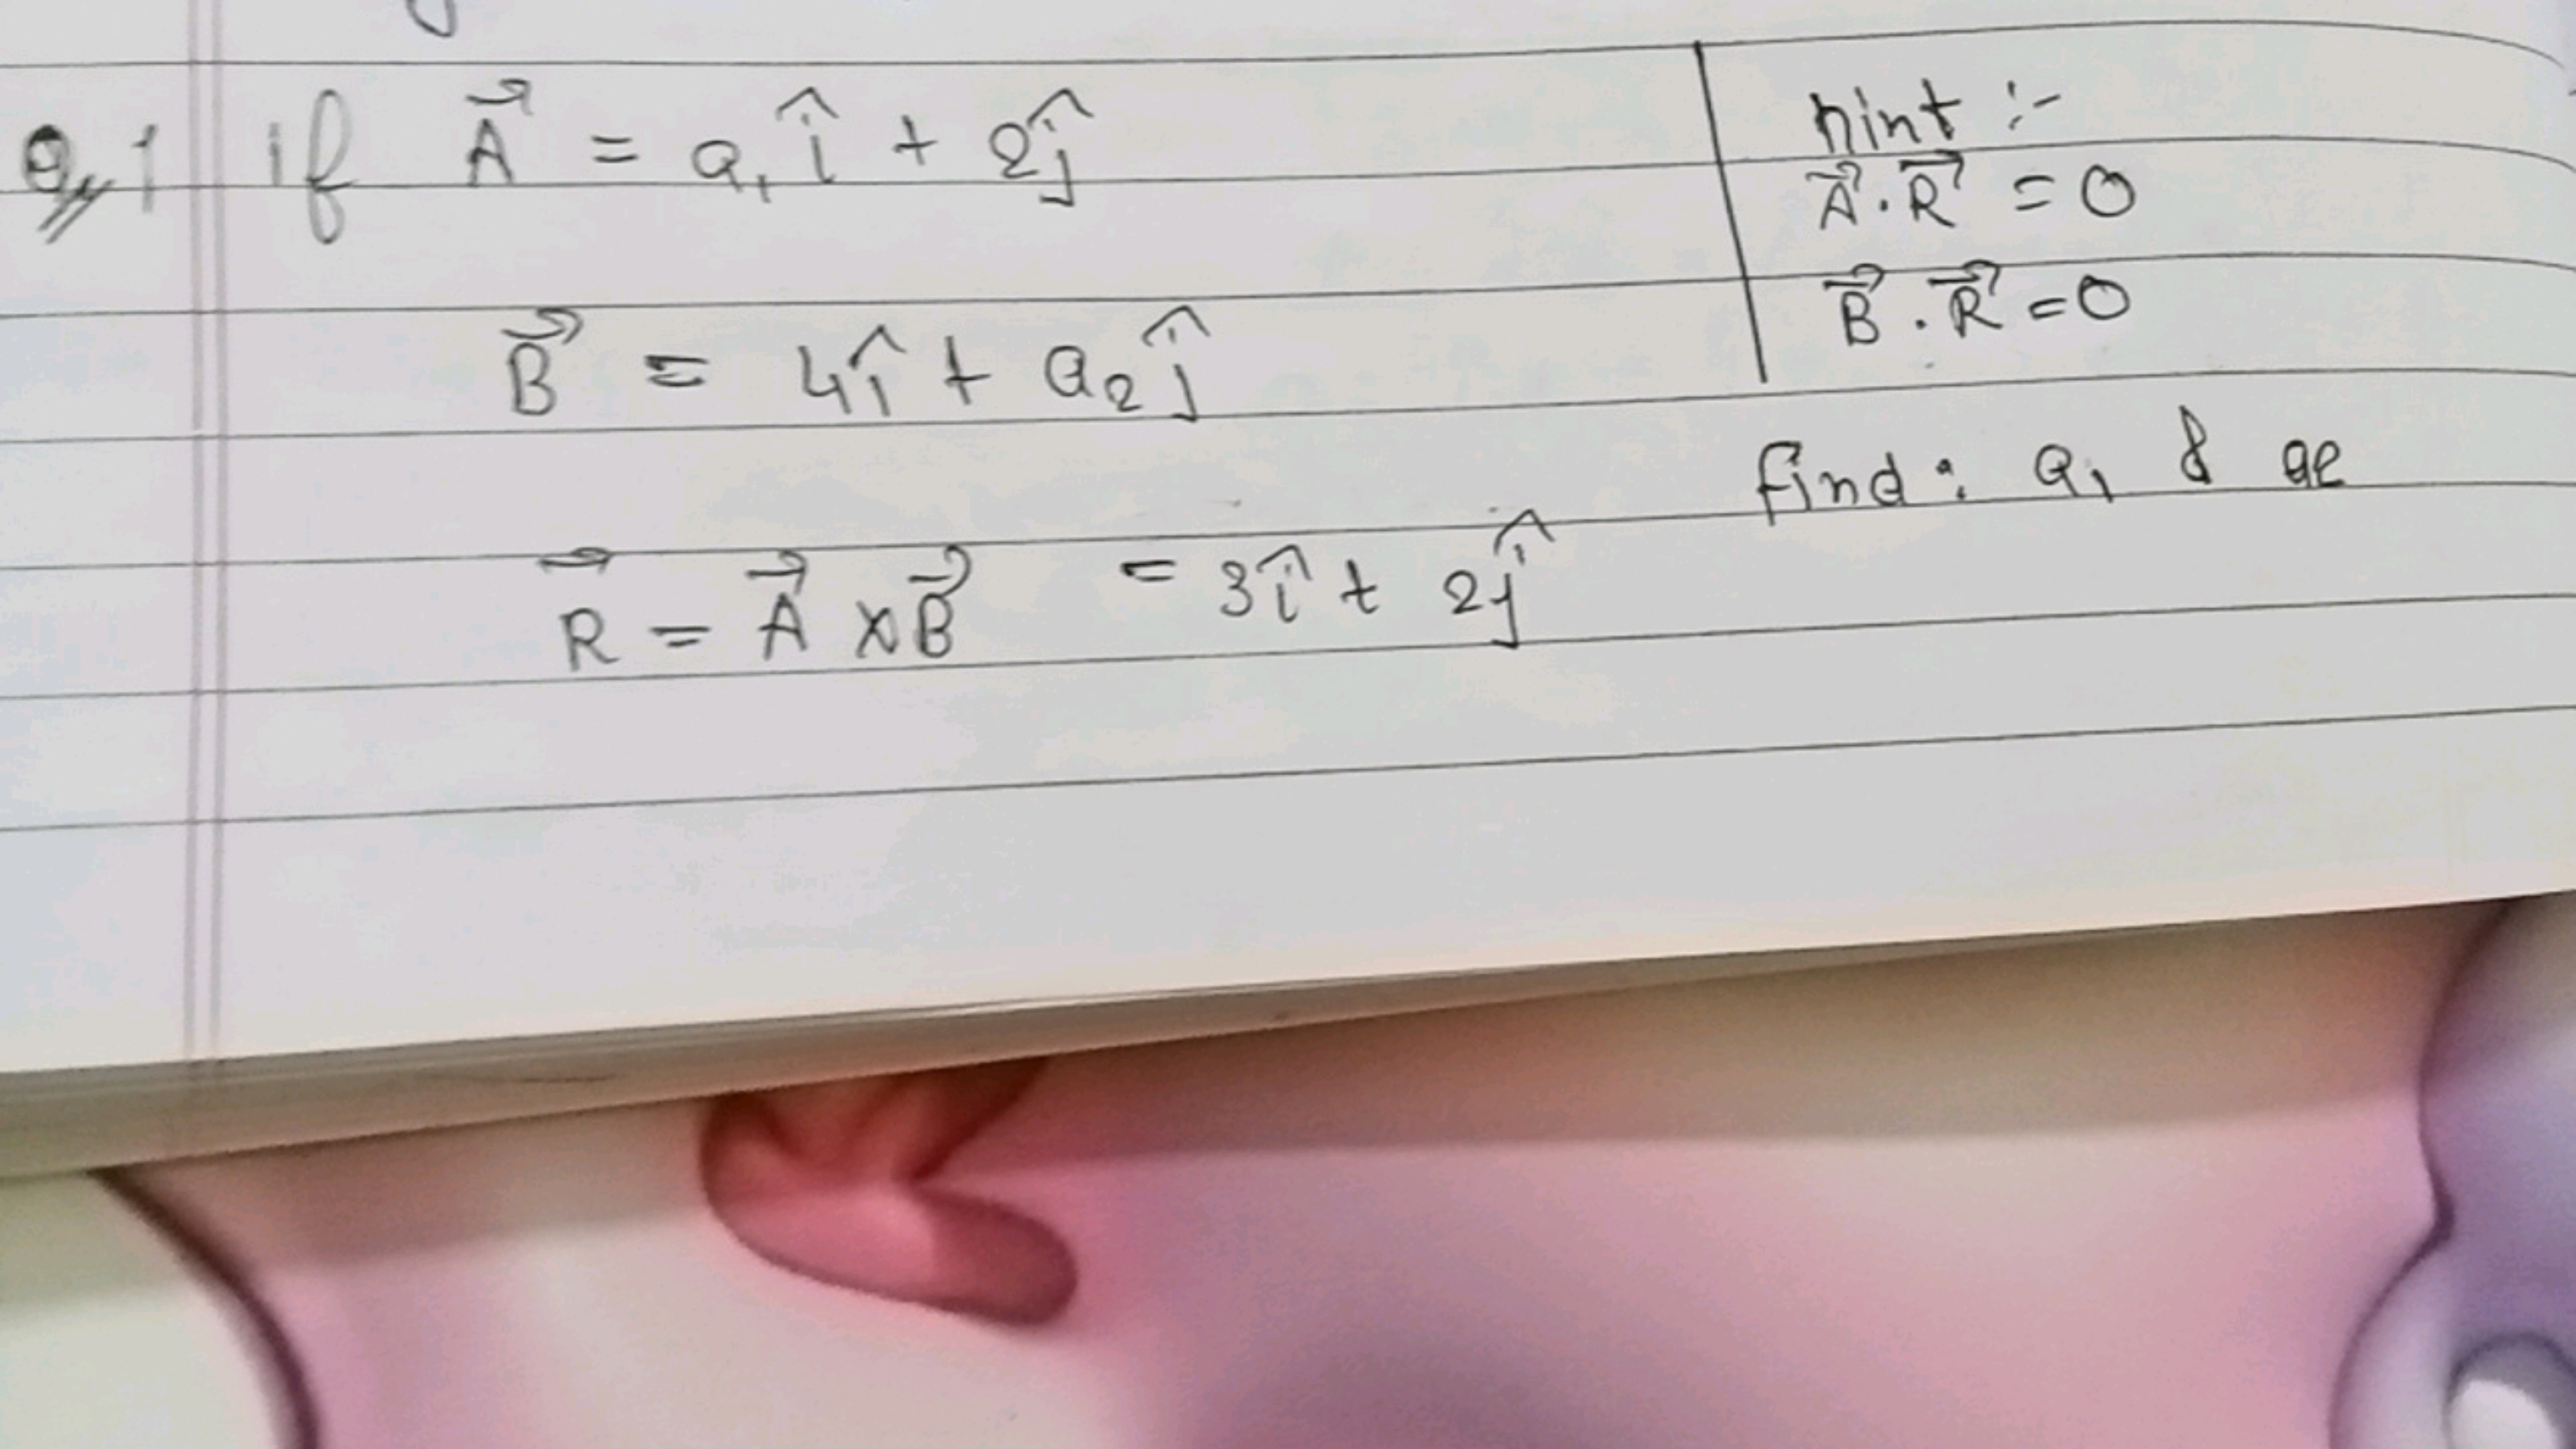 Q.1 if A⃗ = a₁î + 2ĵ
B⃗ = 4î + a₂ĵ
R⃗ = A⃗ × B⃗ = 3î + 2ĵ
hint :-
A⃗ . R⃗ = 0
B⃗ . R⃗ = 0
find : a₁ & a₂